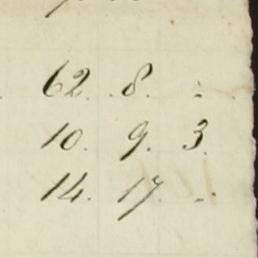 62. 8. -
10. 9. 3
14. 17. -